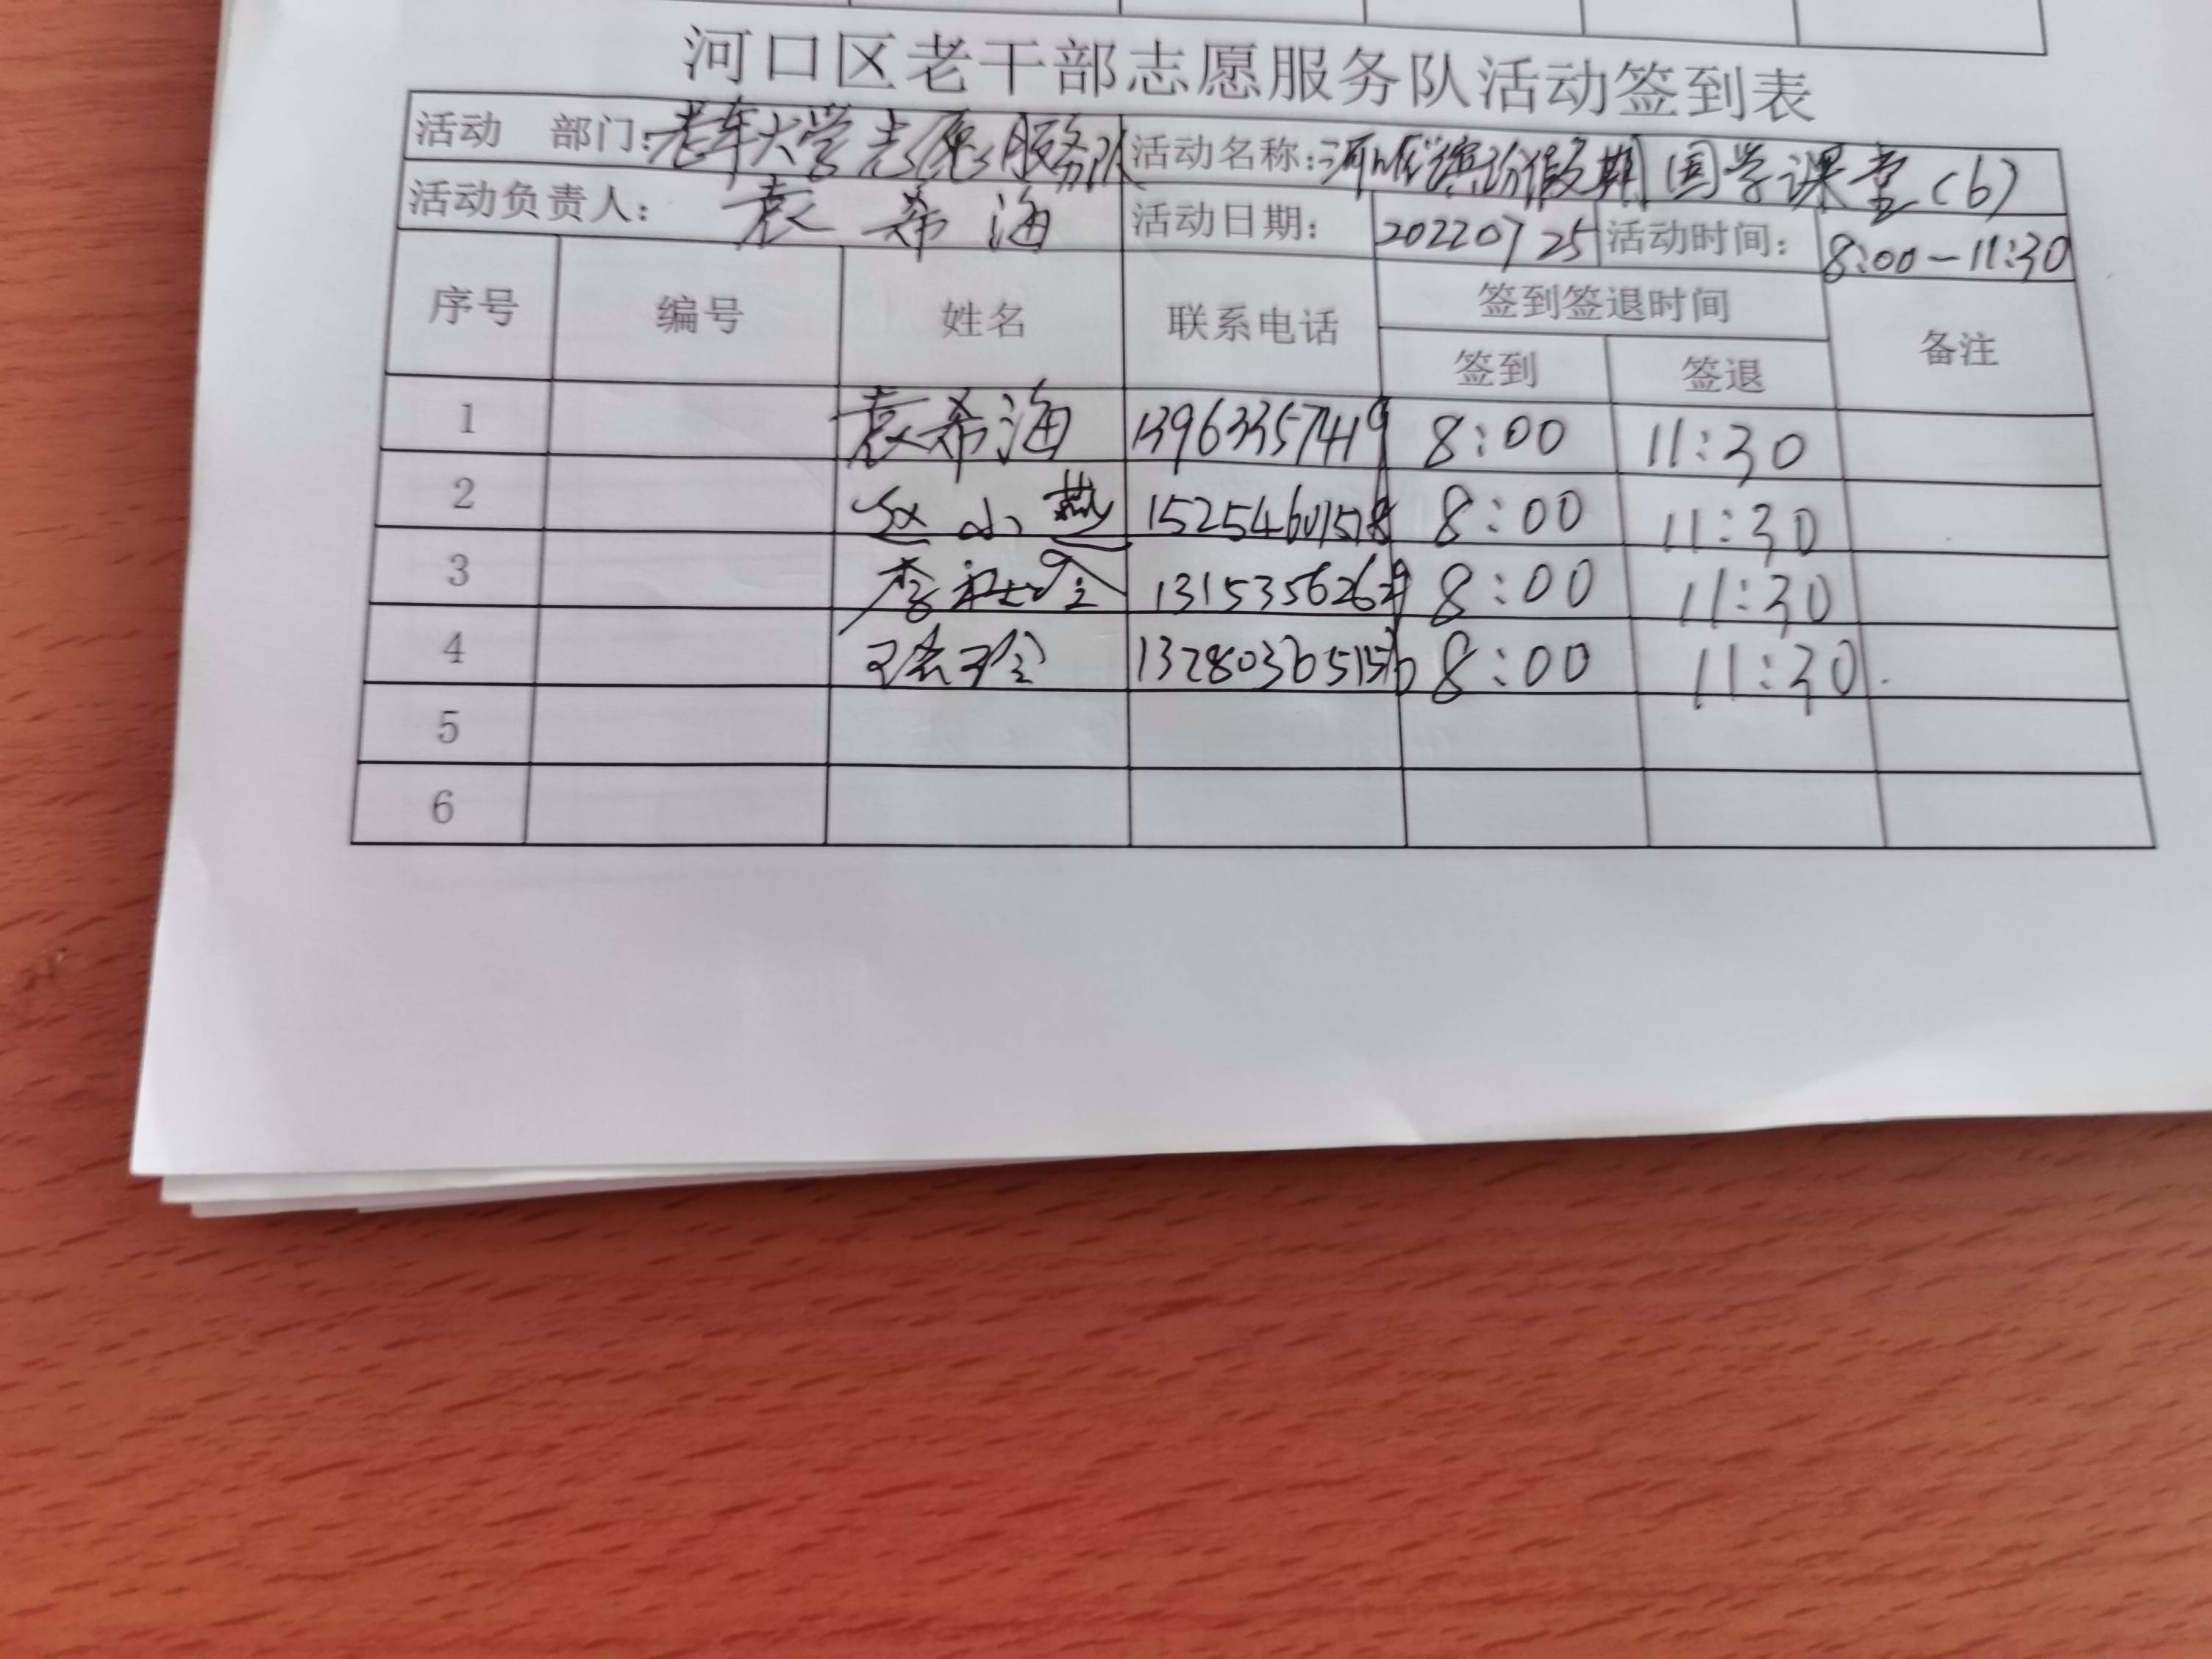 河口区老干部志愿服务队活动签到表
活动 部门:老年大学志愿服务队 活动名称: 缤纷假期国学课堂(6)
活动负责人: 袁希海 活动日期: 20220725 活动时间: 8:00-11:30
序号 编号 姓名 联系电话 签到签退时间 备注
签到 签退
1 袁希海 13963357419 8:00 11:30
2 赵小燕 8:00 11:30
3 8:00 11:30
4 8:00 11:30
5
6